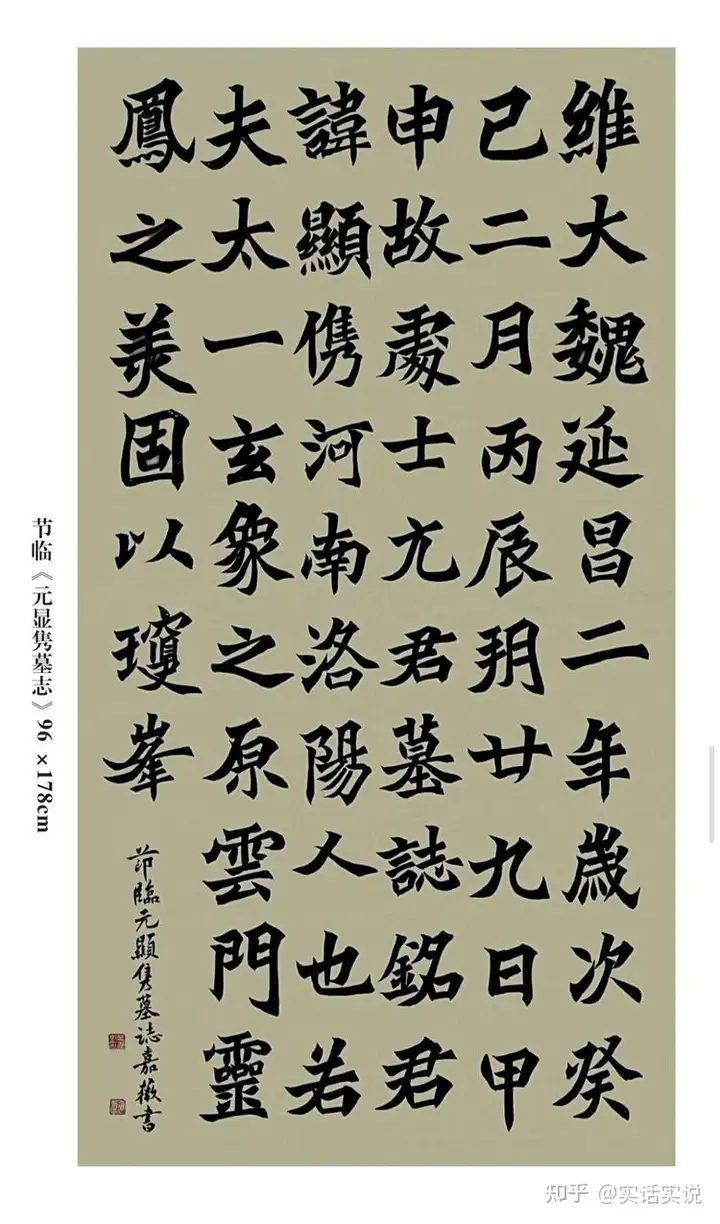 維大魏延昌二年歲次癸
巳二月丙辰朔廿九日甲
申故處士元君墓誌銘君
諱顯儁河南洛陽人也若
夫太一玄象之原雲門靈
鳳之美固以瓊峯
節臨元顯隽墓誌嘉書
节临《元显隽墓志》96×178cm
知乎 @实话实说